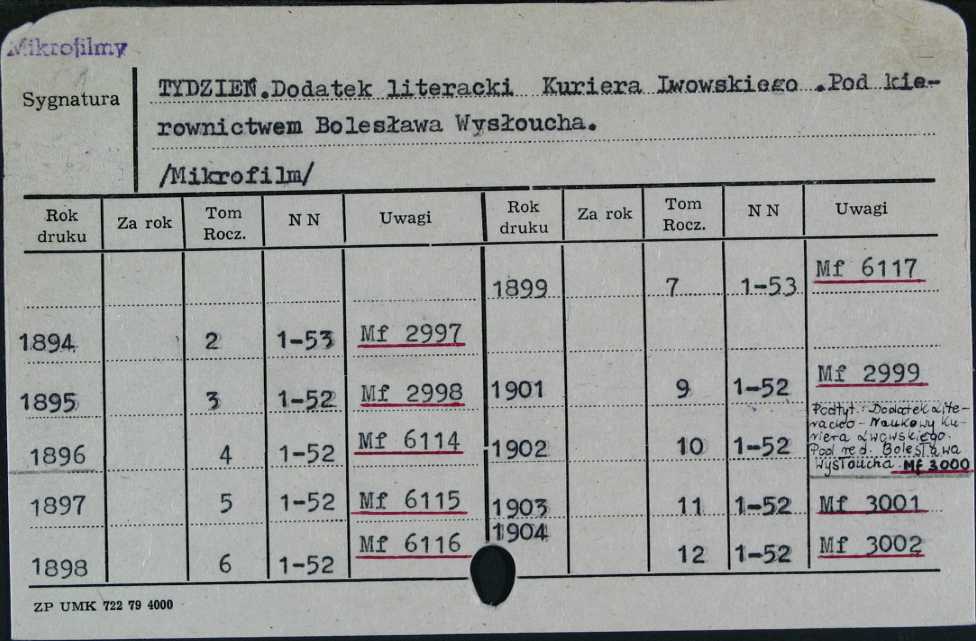 Mikrofilmy
Sygnatura
TYDZIEŃ.Dodatek literacki Kuriera Lwowskiego .Pod kie-
rownictwem Bolesława Wysłoucha.
/Mikrofilm/
Rok druku Za rok Tom Rocz. N N Uwagi Rok druku Za rok Tom Rocz. N N Uwagi
1899 7 1-53 Mf 6117
1894 2 1-53 Mf 2997
1895 3 1-52 Mf 2998 1901 9 1-52 Mf 2999
1896 4 1-52 Mf 6114 1902 10 1-52
Podtyt.: Dodatek Lite-
racko - Naukowy Ku-
riera Lwowskiego.
Pod red. Bolesława
Wysłoucha. Mf 3000
1897 5 1-52 Mf 6115 1903 11 1-52 Mf 3001
1898 6 1-52 Mf 6116 1904 12 1-52 Mf 3002
ZP UMK 722 79 4000